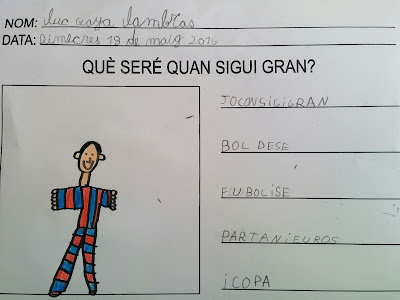 NOM: luc goya lambras
DATA: Dimecres 18 de maig 2016
QUÈ SERÉ QUAN SIGUI GRAN?
JOCONSIGIGRAN
BOL DESE
FUBOLISE
PARTANIEUROS
iCOPA